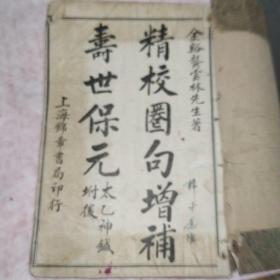 金谿龔雲林先生著
精校圈句增補
壽世保元
太乙神鍼
附後
上海錦章書局印行